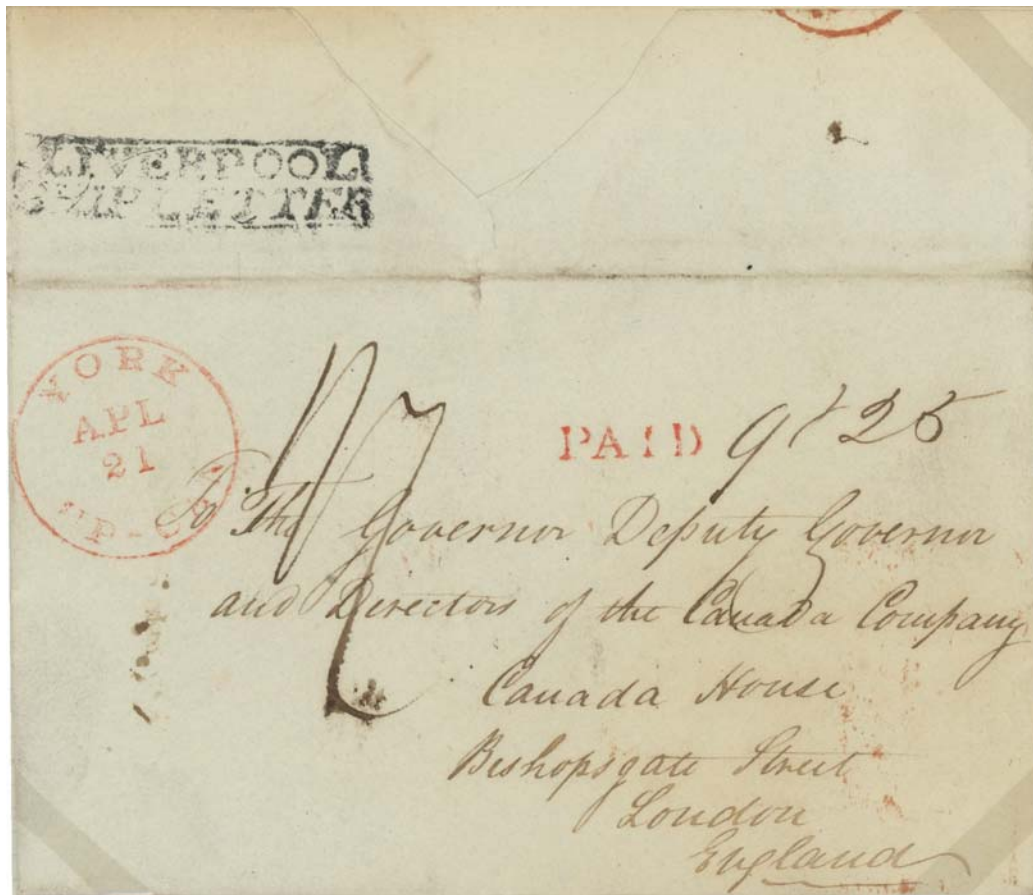 LIVERPOOL
SHIP LETTER
YORK
APL
21
UP-CA
PAID
25
To The Governor Deputy Governor
and Directors of the Canada Company
Canada House
Bishopsgate Street
London
England